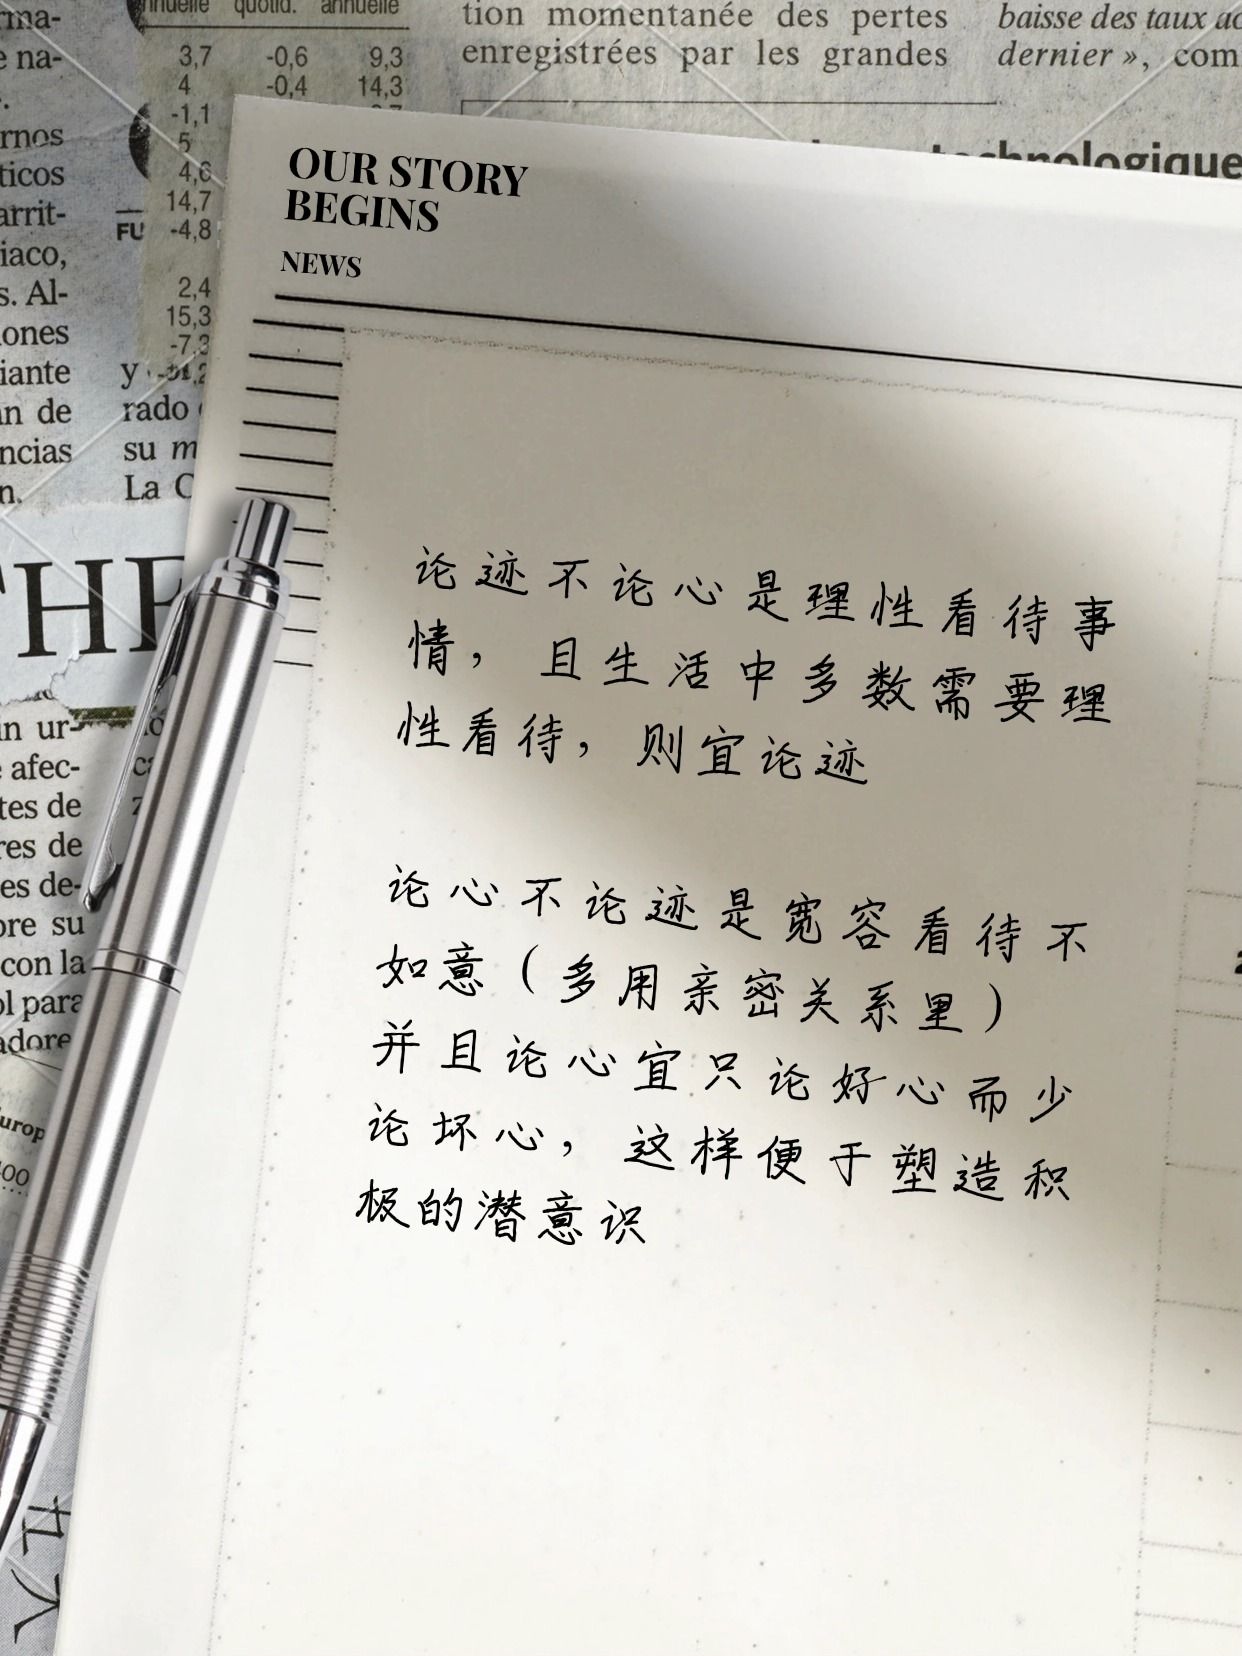 nnuelle quotid. annuelle
3,7 -0,6 9,3
4 -0,4 14,3
-1,1
5
4,6
14,7
FU -4,8
2,4
15,3
-7,3
tion momentanée des pertes
enregistrées par les grandes
baisse des taux
dernier », com
technologique
rnos
ticos
arrit-
iaco,
s. Al-
iones
iante
an de
ncias
n.
y
rado
su m
La C
THE
in ur-
afec-
tes de
res de
es de-
ore su
con la
ol para
adore
Europ
OUR STORY
BEGINS
NEWS
论迹不论心是理性看待事
情，且生活中多数需要理
性看待，则宜论迹
论心不论迹是宽容看待不
如意（多用亲密关系里）
并且论心宜只论好心而少
论坏心，这样便于塑造积
极的潜意识